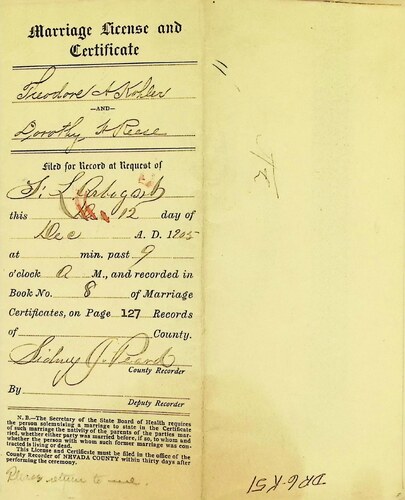 Marriage License and
Certificate
Theodore A Kohler
—AND—
Dorothy H Reese
Filed for Record at Request of
this 12 day of
Dec A. D. 1905
at min. past 9
o'clock a M., and recorded in
Book No. 8 of Marriage
Certificates, on Page 127 Records
of County.
Sidney J.
County Recorder
By
Deputy Recorder
N. B.—The Secretary of the State Board of Health requires
the person solemnizing a marriage to state in the Certificate
of such marriage the nativity of the parents of the parties mar-
ried, whether either party was married before, if so, to whom and
whether the person with whom such former marriage was con-
tracted is living or dead.
This License and Certificate must be filed in the office of the
County Recorder of NEVADA COUNTY within thirty days after
performing the ceremony.
Please return to me.
11
DR6-K51